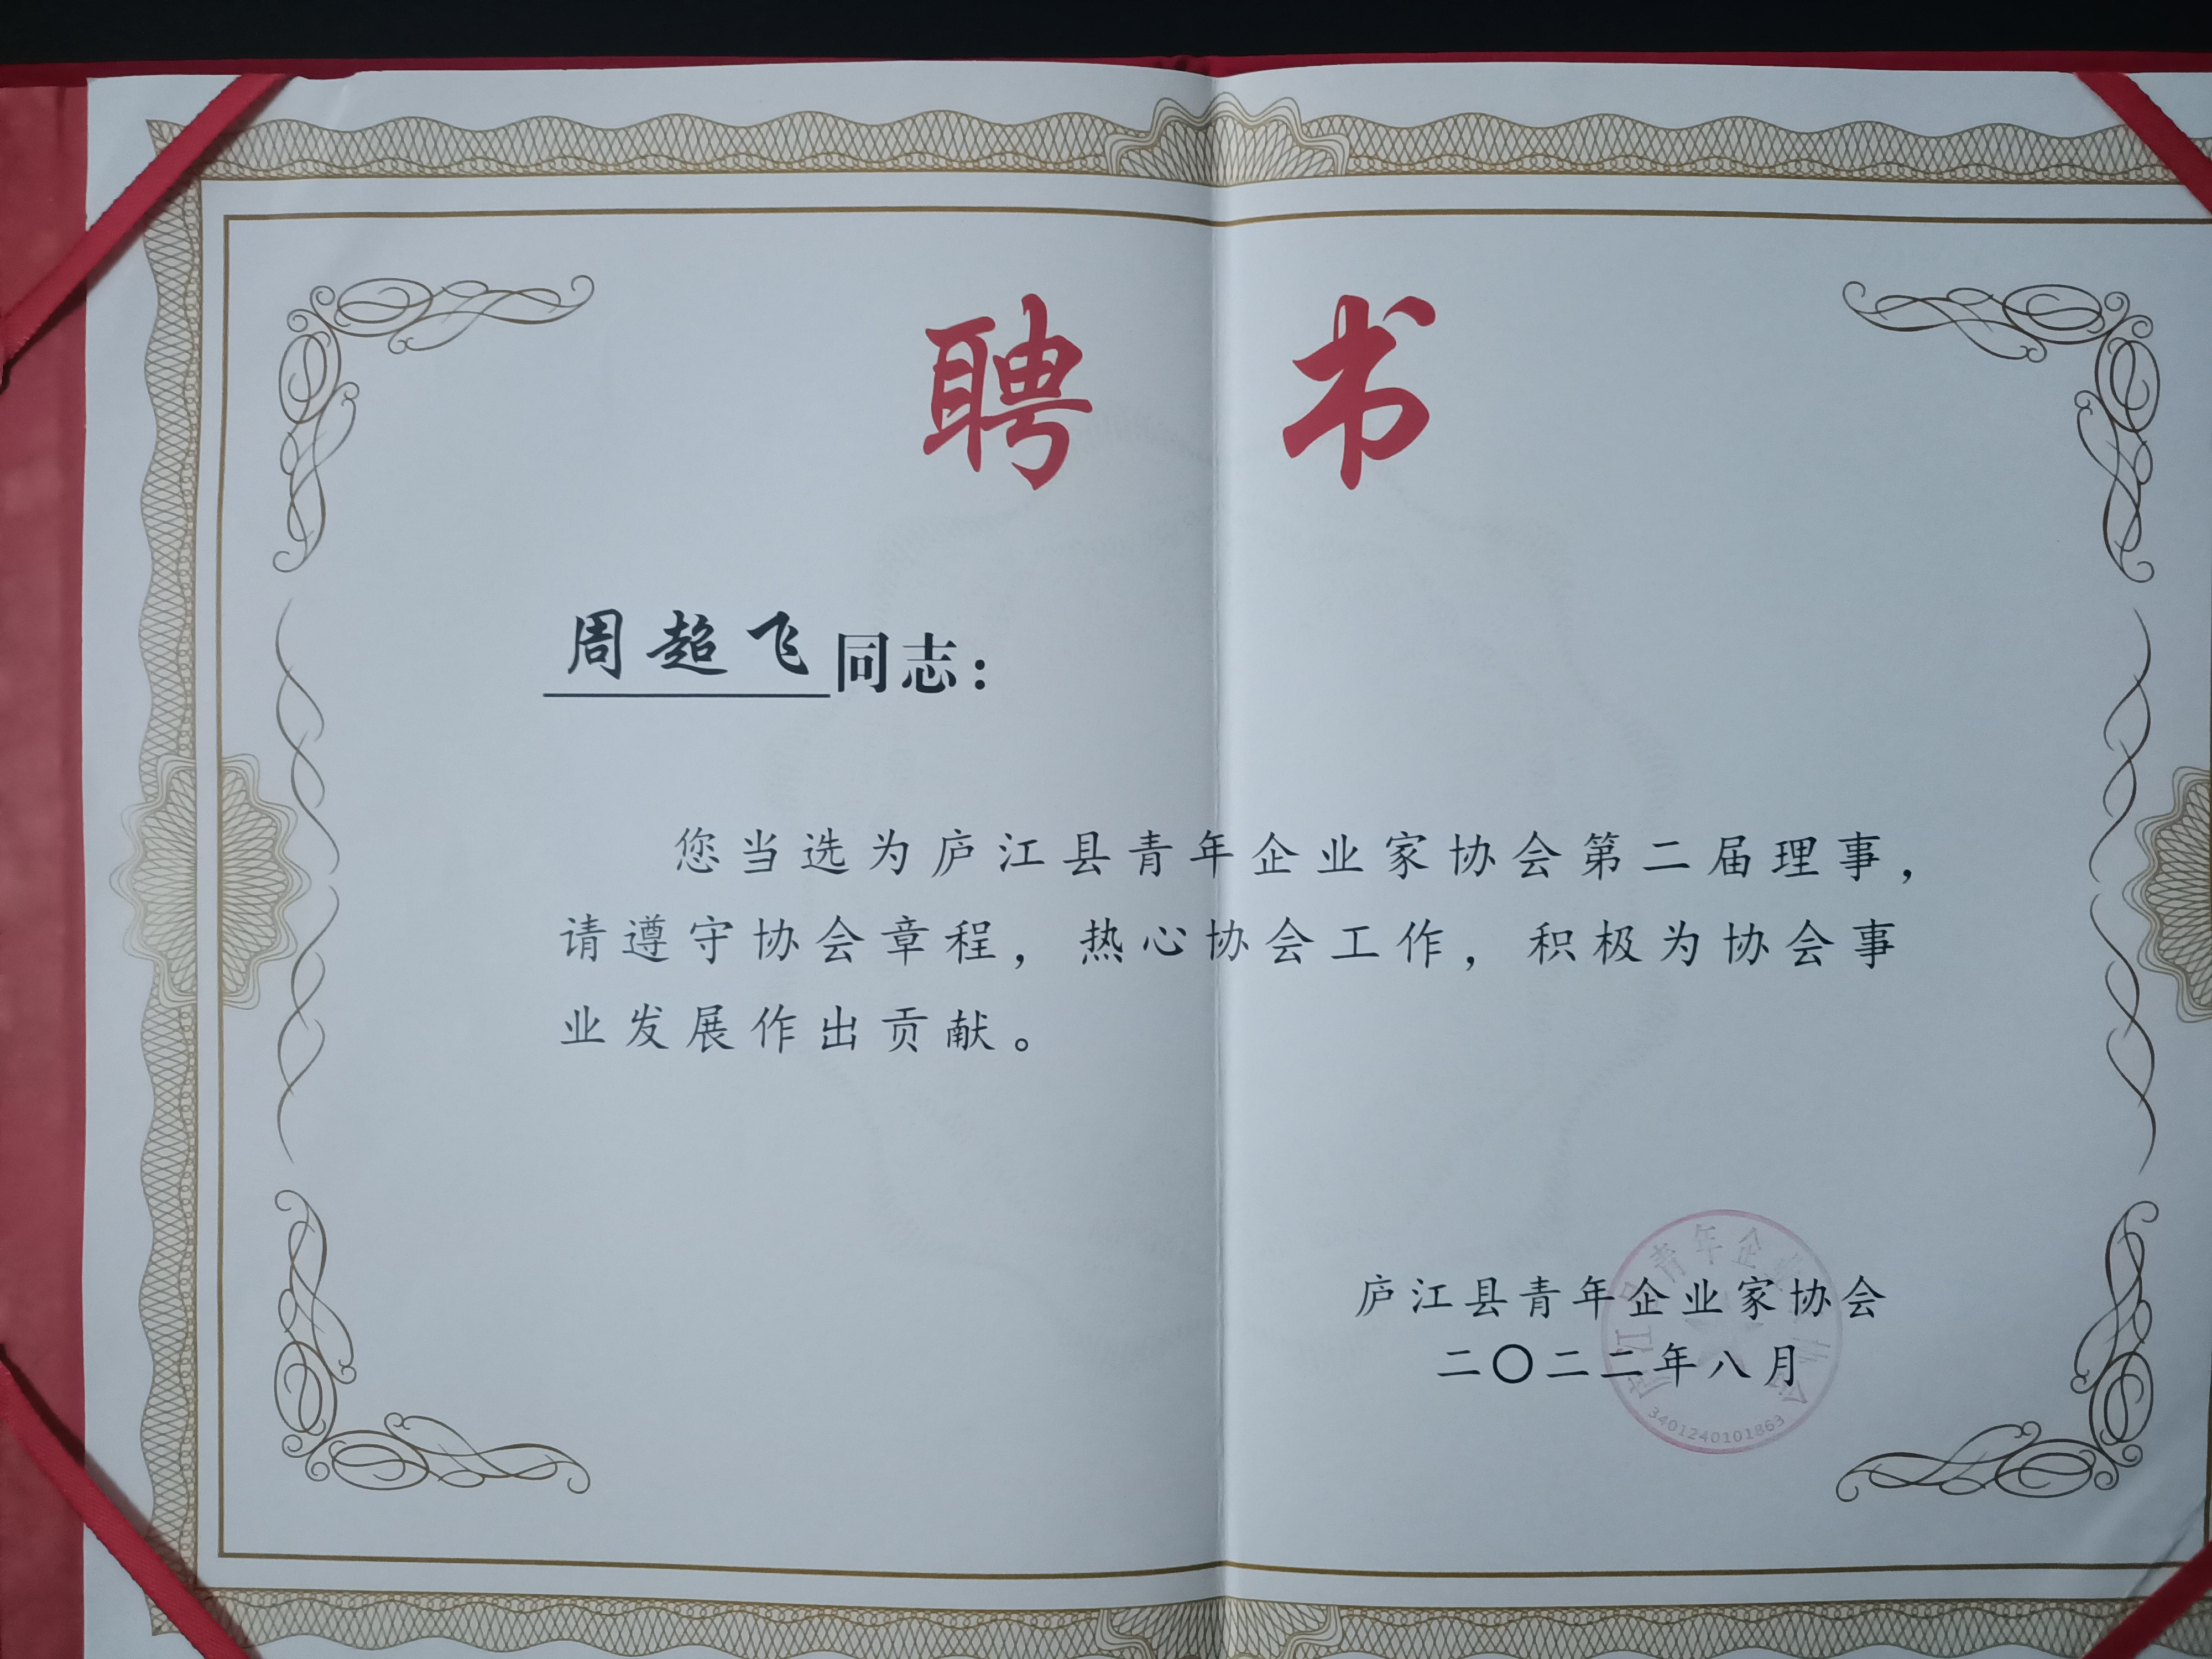 聘书
周超飞同志：
您当选为庐江县青年企业家协会第二届理事，
请遵守协会章程，热心协会工作，积极为协会事
业发展作出贡献。
庐江县青年企业家协会
二〇二二年八月
庐江县青年企业家协会
3401240101863